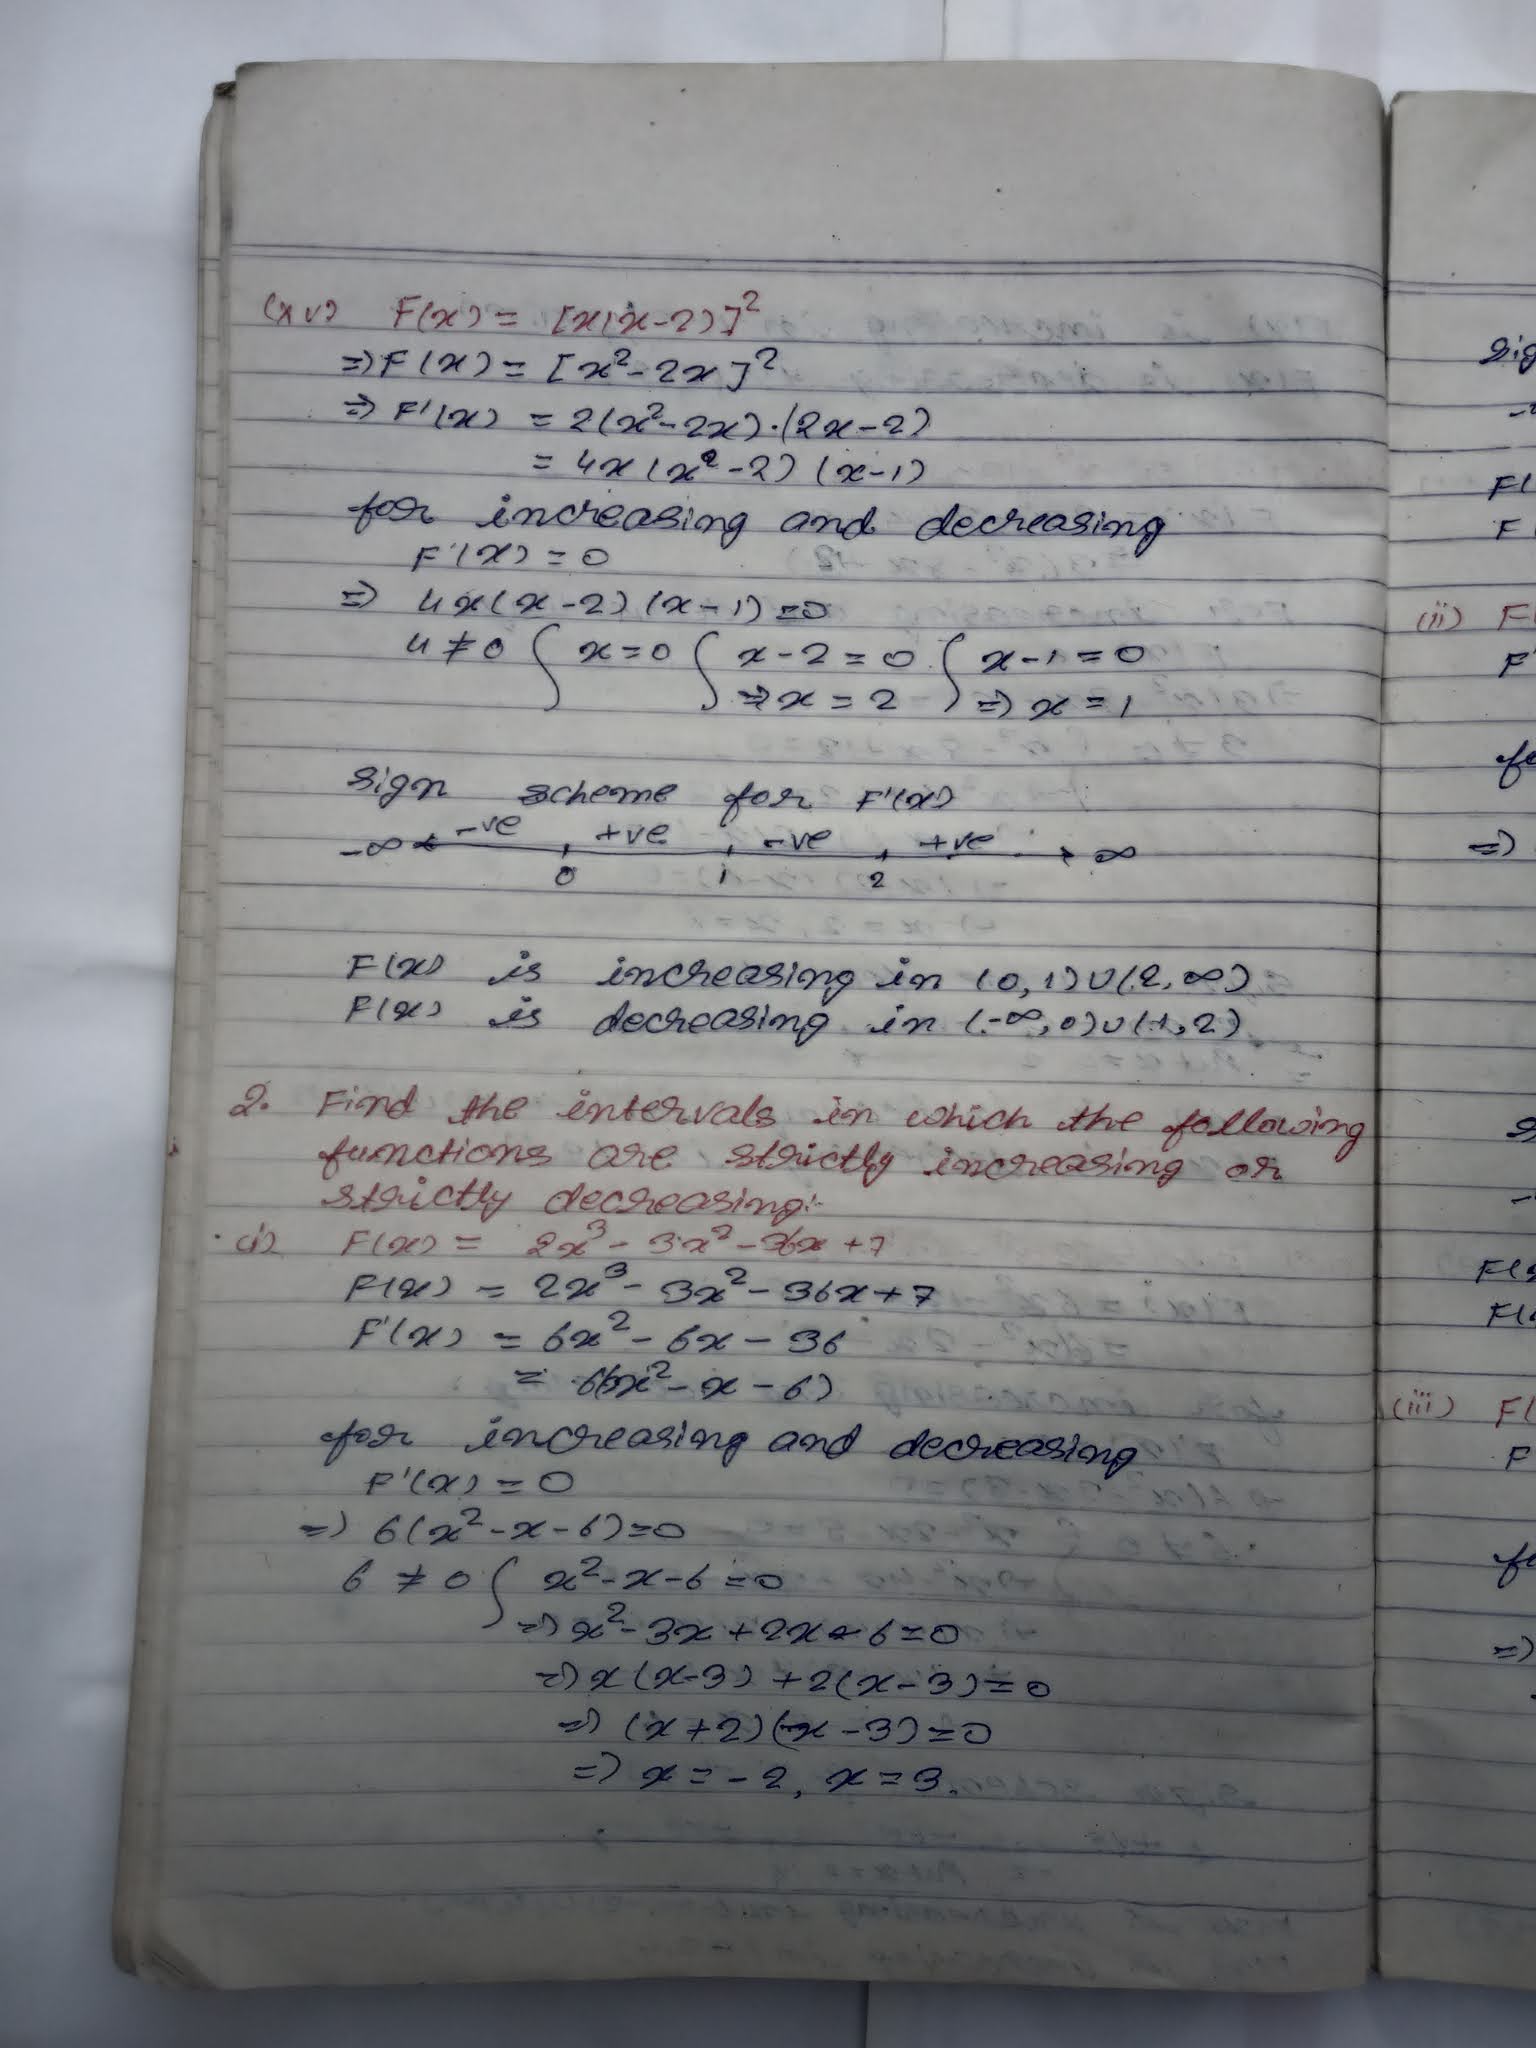 (xv) F(x) = [x(x-2)]²
⇒ F(x) = [x²-2x]²
⇒ F'(x) = 2(x²-2x)·(2x-2)
= 4x(x-2)(x-1)
for increasing and decreasing
F'(x) = 0
⇒ 4x(x-2)(x-1)=0
4≠0 ∫ x=0 ∫ x-2=0 ∫ x-1=0
⇒ x=2 ⇒ x=1
Sign scheme for F'(x)
-∞ -ve +ve -ve +ve ∞
0 1 2
F(x) is increasing in (0,1)∪(2,∞)
F(x) is decreasing in (-∞,0)∪(1,2)
2. Find the intervals in which the following
functions are strictly increasing or
strictly decreasing:-
(i) F(x) = 2x³-3x²-36x+7
F(x) = 2x³-3x²-36x+7
F'(x) = 6x²-6x-36
= 6(x²-x-6)
for increasing and decreasing
F'(x) = 0
⇒ 6(x²-x-6)=0
6≠0 ∫ x²-x-6=0
⇒ x²-3x+2x-6=0
⇒ x(x-3)+2(x-3)=0
⇒ (x+2)(x-3)=0
⇒ x=-2, x=3.
Sig
F(
F
(ii) F(
F'
fo
⇒)
F(x
F(x
(iii) F(
F
fo
⇒)